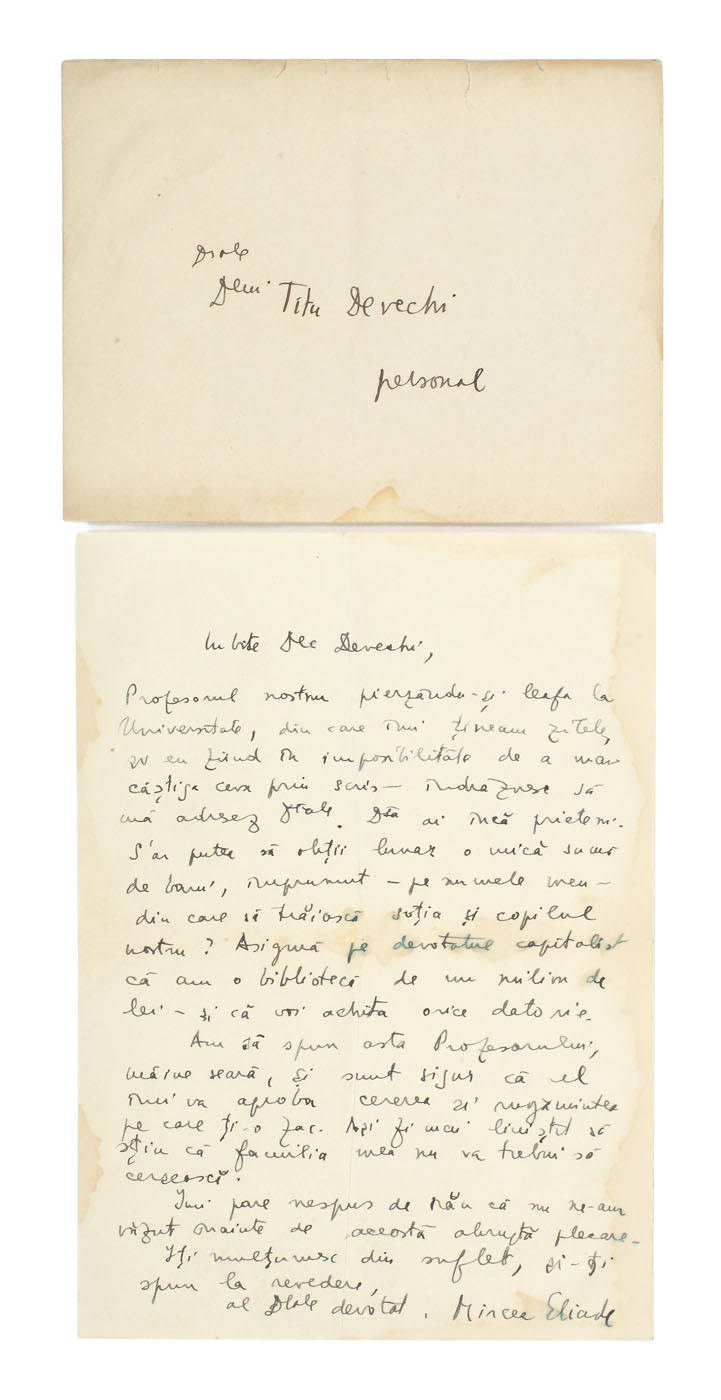 Dsale
Dlui Titu Devechi
personal
Iubite Dle Devechi,
Profesorul nostru pierzându-și leafa la
Universitate, din care îmi țineam zilele,
și eu fiind în imposibilitate de a mai
câștiga ceva prin scris – îndrăznesc să
mă adresez Dtale. Dta ai încă prieteni.
S'ar putea să obții lunar o mică sumă
de bani, împrumut – pe numele meu –
din care să trăiască soția și copilul
nostru? Asigură pe devotatul capitalist
că am o bibliotecă de un milion de
lei – și că voi achita orice datorie.
Am să spun asta Profesorului,
mâine seară, și sunt sigur că el
îmi va aproba cererea și rugămintea
pe care ți-o fac. Aș fi mai liniștit să
știu că familia mea nu va trebui să
cerșească.
Îmi pare nespus de rău că nu ne-am
văzut înainte de această abruptă plecare.
Îți mulțumesc din suflet, și-ți
spun la revedere,
al Dtale devotat, Mircea Eliade